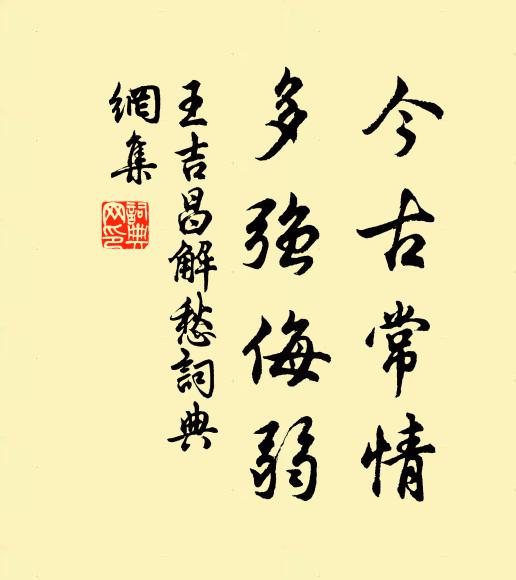 今古常情
多強侮弱
王吉昌解愁詞典
網集
詞典
网印